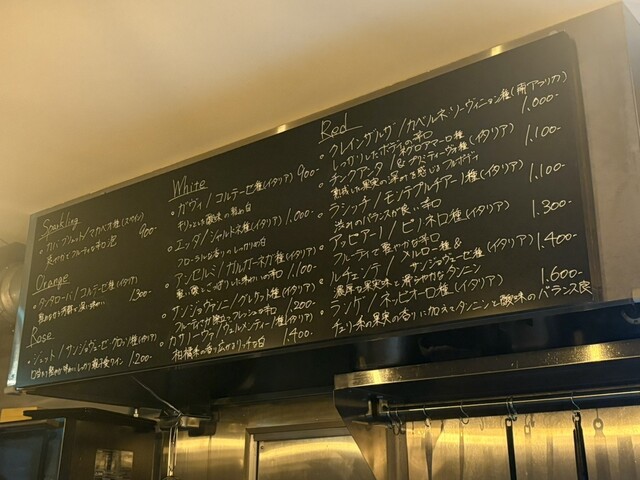 Sparkling
・カバ ブリュット/マカベオ種(スペイン)
900-
Orange
・タンタローバ/コルテーゼ種(イタリア)
1300-
Rose
・ジェット/サンジョヴェーゼ・グロッソ種(イタリア)
1200-
White
・ガヴィ/コルテーゼ種(イタリア) 900-
・エッタ/シャルドネ種(イタリア) 1.000-
フローラルな香りのしっかり白
・アンセルミ/ガルガーネガ種(イタリア)
1.100-
・サンジョヴァンニ/グレケット種(イタリア)
1200-
・カリーヴァ/ヴェルメンティーノ種(イタリア)
柑橘系の香り広がるリッチな白 1.400-
Red
・クレインザルゼ/カベルネ・ソーヴィニョン種(南アフリカ)
しっかりしたボディの辛口 1.000-
・チンクアンタ/ネグロアマーロ種
&プリミティーヴォ種 (イタリア) 1.100-
熟成した果実の深みを感じるフルボディ
・ラシッチ/モンテプルチアーノ種(イタリア) 1.100-
渋みのバランスが良い辛口
・アッピアーノ/ピノネロ種(イタリア) 1.300-
フルーティで軽やかな辛口
・ルチェンテ/メルロー種&
サンジョヴェーゼ種 (イタリア) 1.400-
濃厚な果実味と滑らかなタンニン
・ランゲ/ネッビオーロ種(イタリア) 1.600-
チェリー系の果実の香りに加えてタンニンと酸味のバランス良